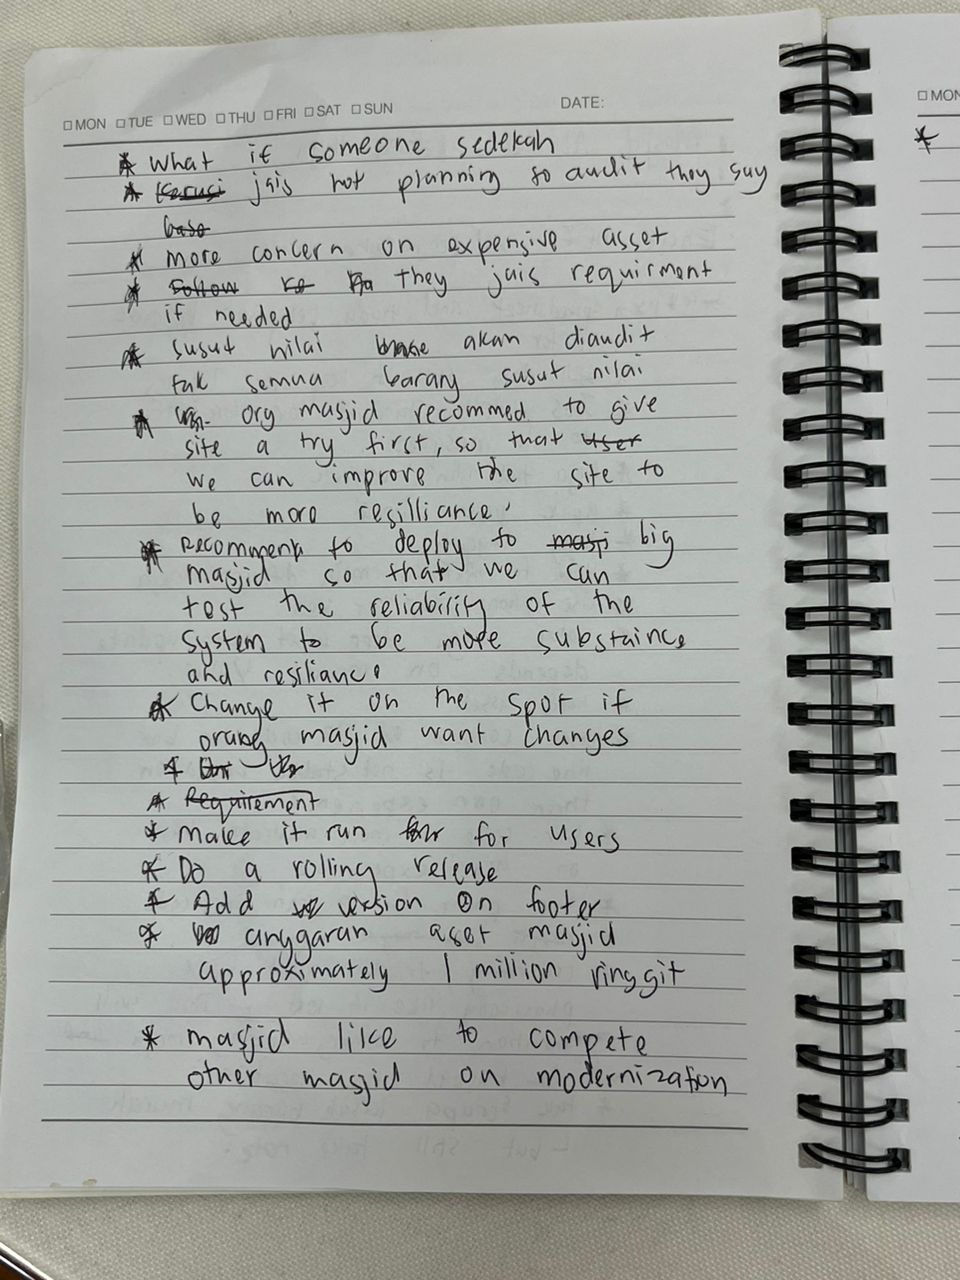 □ MON □ TUE □ WED □ THU □ FRI □ SAT □ SUN DATE:
* What if someone sedekah
* Kerusi jais not planning to audit they say
base
* more concern on expensive asset
* Follow they jais requirment
if needed
* susut nilai akan diaudit
tak semua barang susut nilai
* org masjid recommed to give
site a try first, so that user
we can improve the site to
be more resilliance.
* Recomment to deploy to masji big
masjid so that we can
test the reliability of the
system to be more substaince
and resiliance
* Change it on the spot if
orang masjid want changes
*
* Requirement
* make it run for users
* Do a rolling release
* Add version on footer
* anggaran aset masjid
approximately 1 million ringgit
* masjid like to compete
other masjid on modernization
□ MON
*